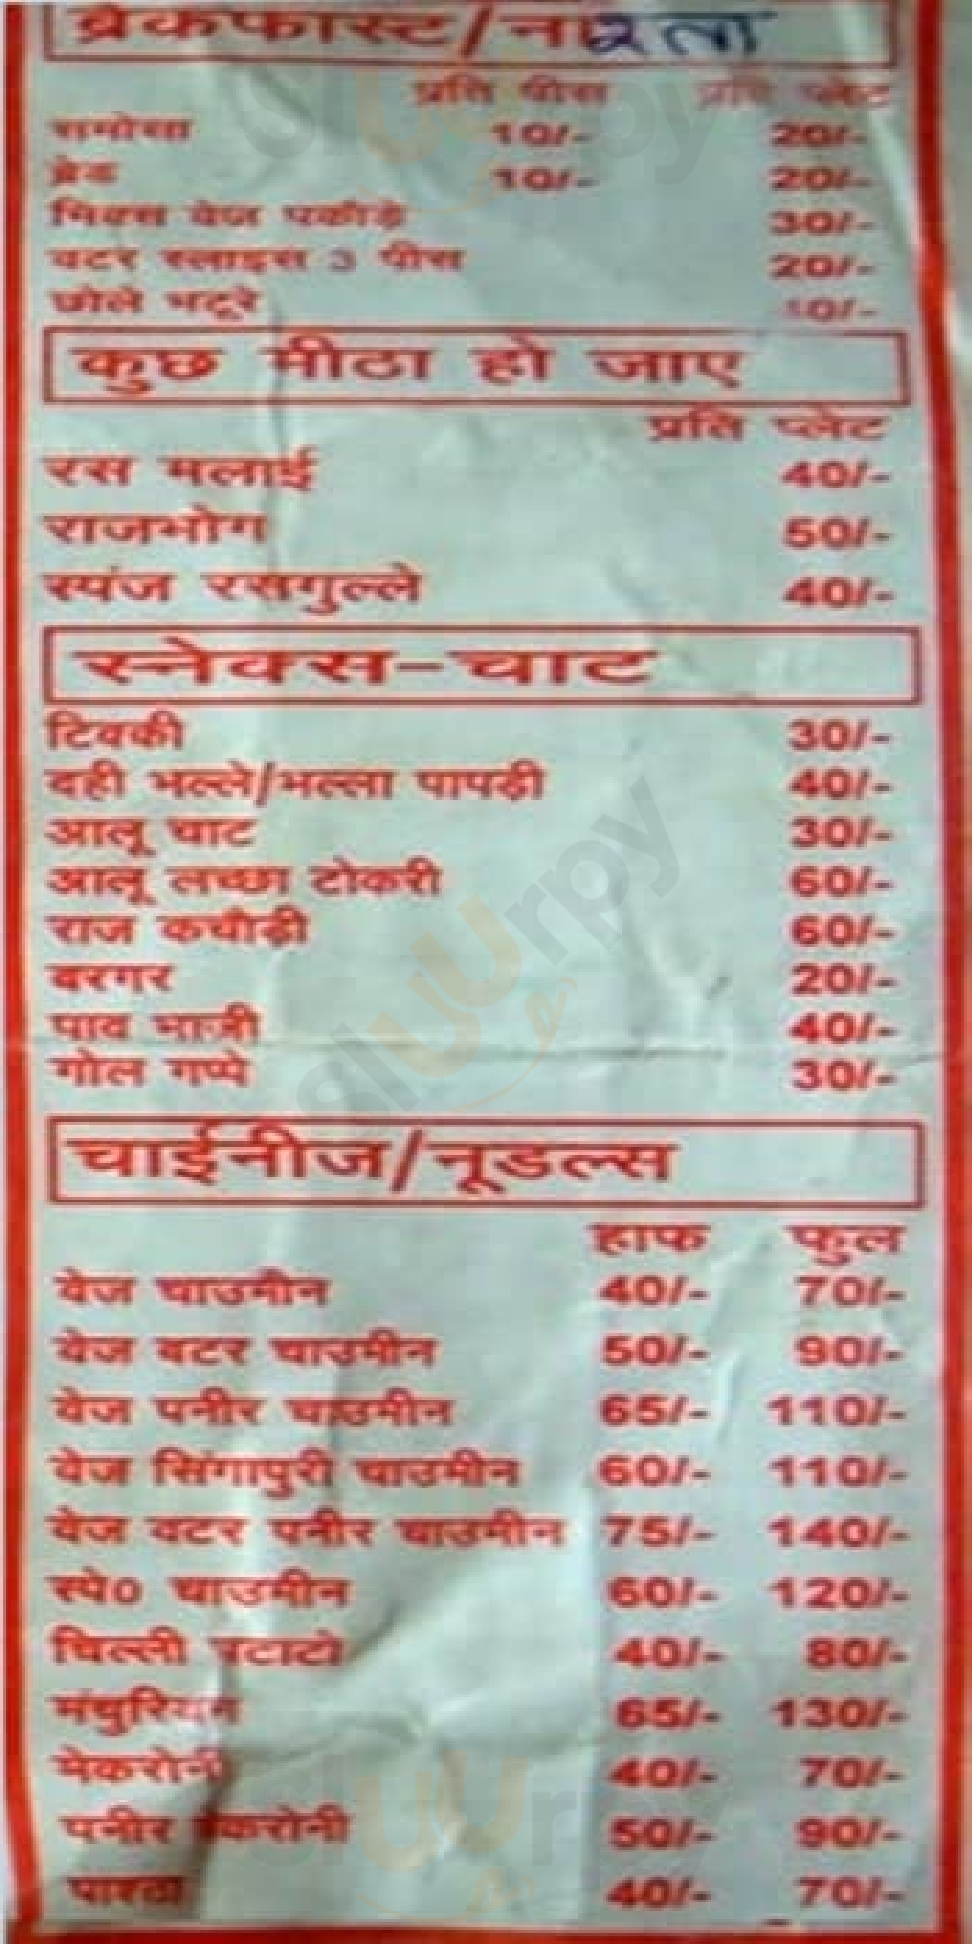 ब्रेकफास्ट/नाश्ता
प्रति पीस प्रति प्लेट
समोसा 10/- 20/-
ब्रेड 10/- 20/-
मिक्स वेज पकौड़े 30/-
बटर स्लाइस 3 पीस 20/-
छोले भटूरे
कुछ मीठा हो जाए
प्रति प्लेट
रस मलाई 40/-
राजभोग 50/-
स्पंज रसगुल्ले 40/-
स्नेक्स-चाट
टिक्की 30/-
दही भल्ले/भल्ला पापड़ी 40/-
आलू चाट 30/-
आलू लच्छा टोकरी 60/-
राज कचौड़ी 60/-
बरगर 20/-
पाव भाजी 40/-
गोल गप्पे 30/-
चाईनीज/नूडल्स
हाफ फुल
वेज चाउमीन 40/- 70/-
वेज बटर चाउमीन 50/- 90/-
वेज पनीर चाउमीन 65/- 110/-
वेज सिंगापुरी चाउमीन 60/- 110/-
वेज बटर पनीर चाउमीन 75/- 140/-
स्पे0 चाउमीन 60/- 120/-
चिल्ली पटाटो 40/- 80/-
मंचुरियन 65/- 130/-
मेकरोनी 40/- 70/-
पनीर मेकरोनी 50/- 90/-
पास्ता 40/- 70/-
sluurpy
sluurpy
sluurpy